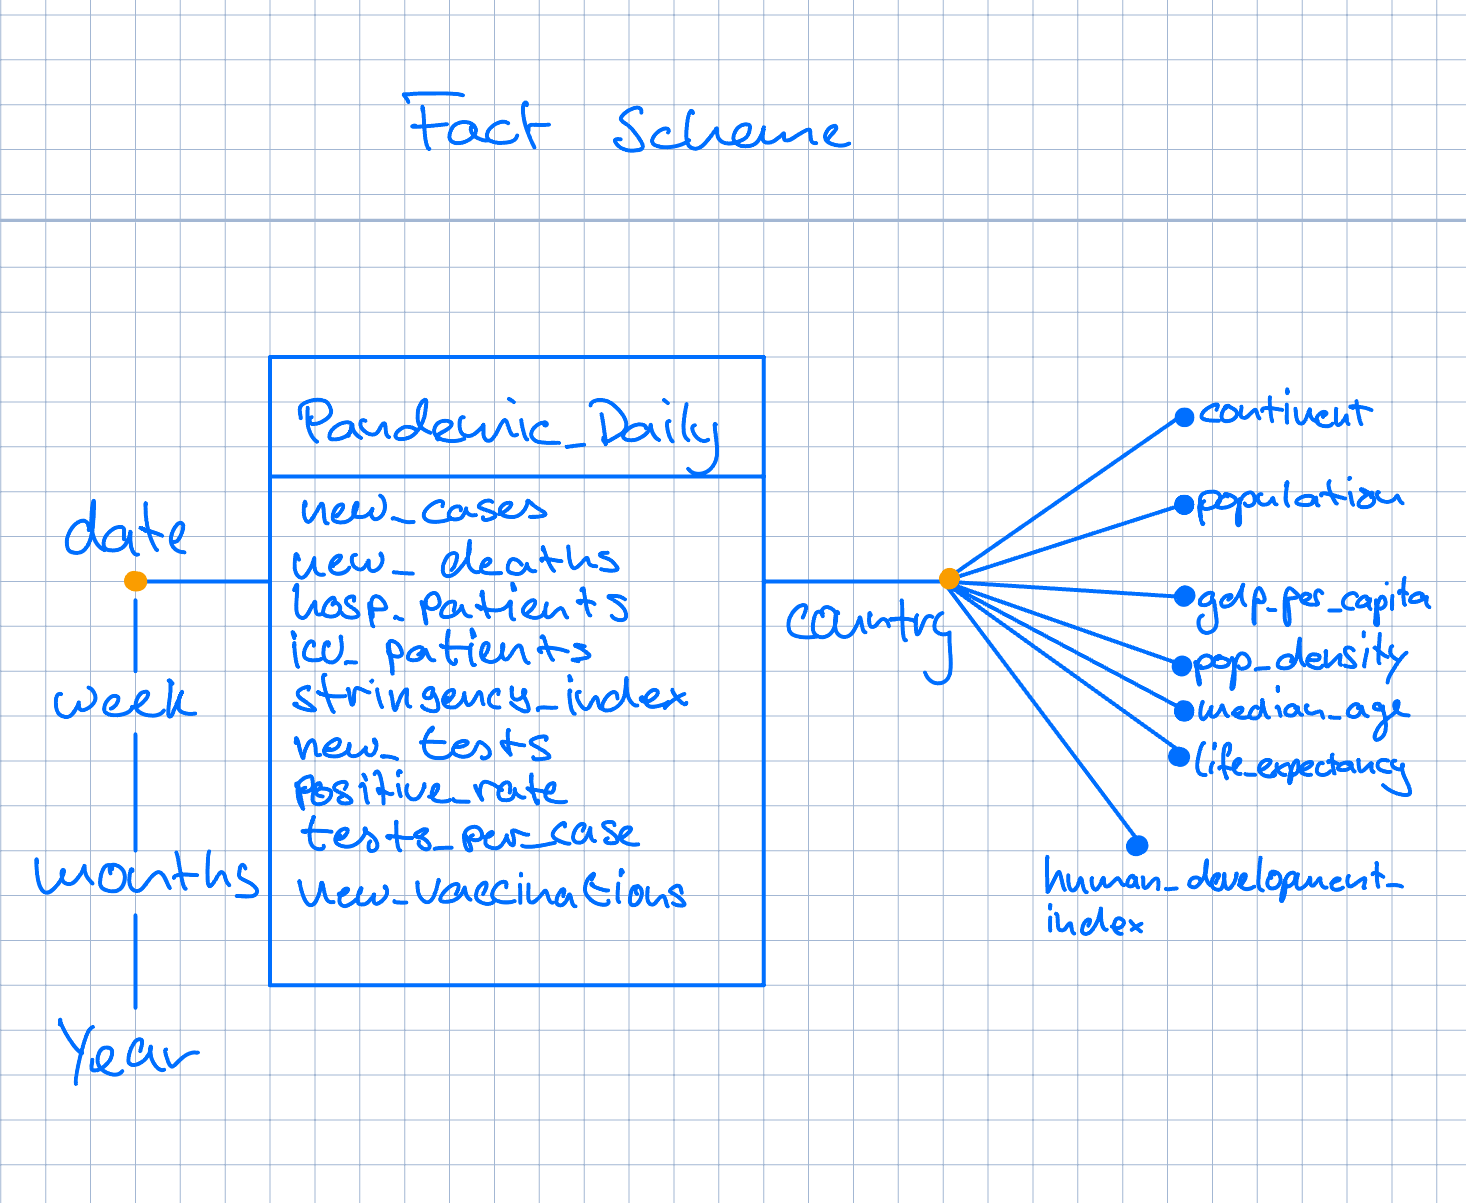 Fact Scheme
Pandemic_Daily
new_cases
new_deaths
hosp_patients
icu_patients
stringency_index
new_tests
positive_rate
tests_per_case
new_vaccinations
date
week
months
Year
country
continent
population
gdp_per_capita
pop_density
median_age
life_expectancy
human_development_
index